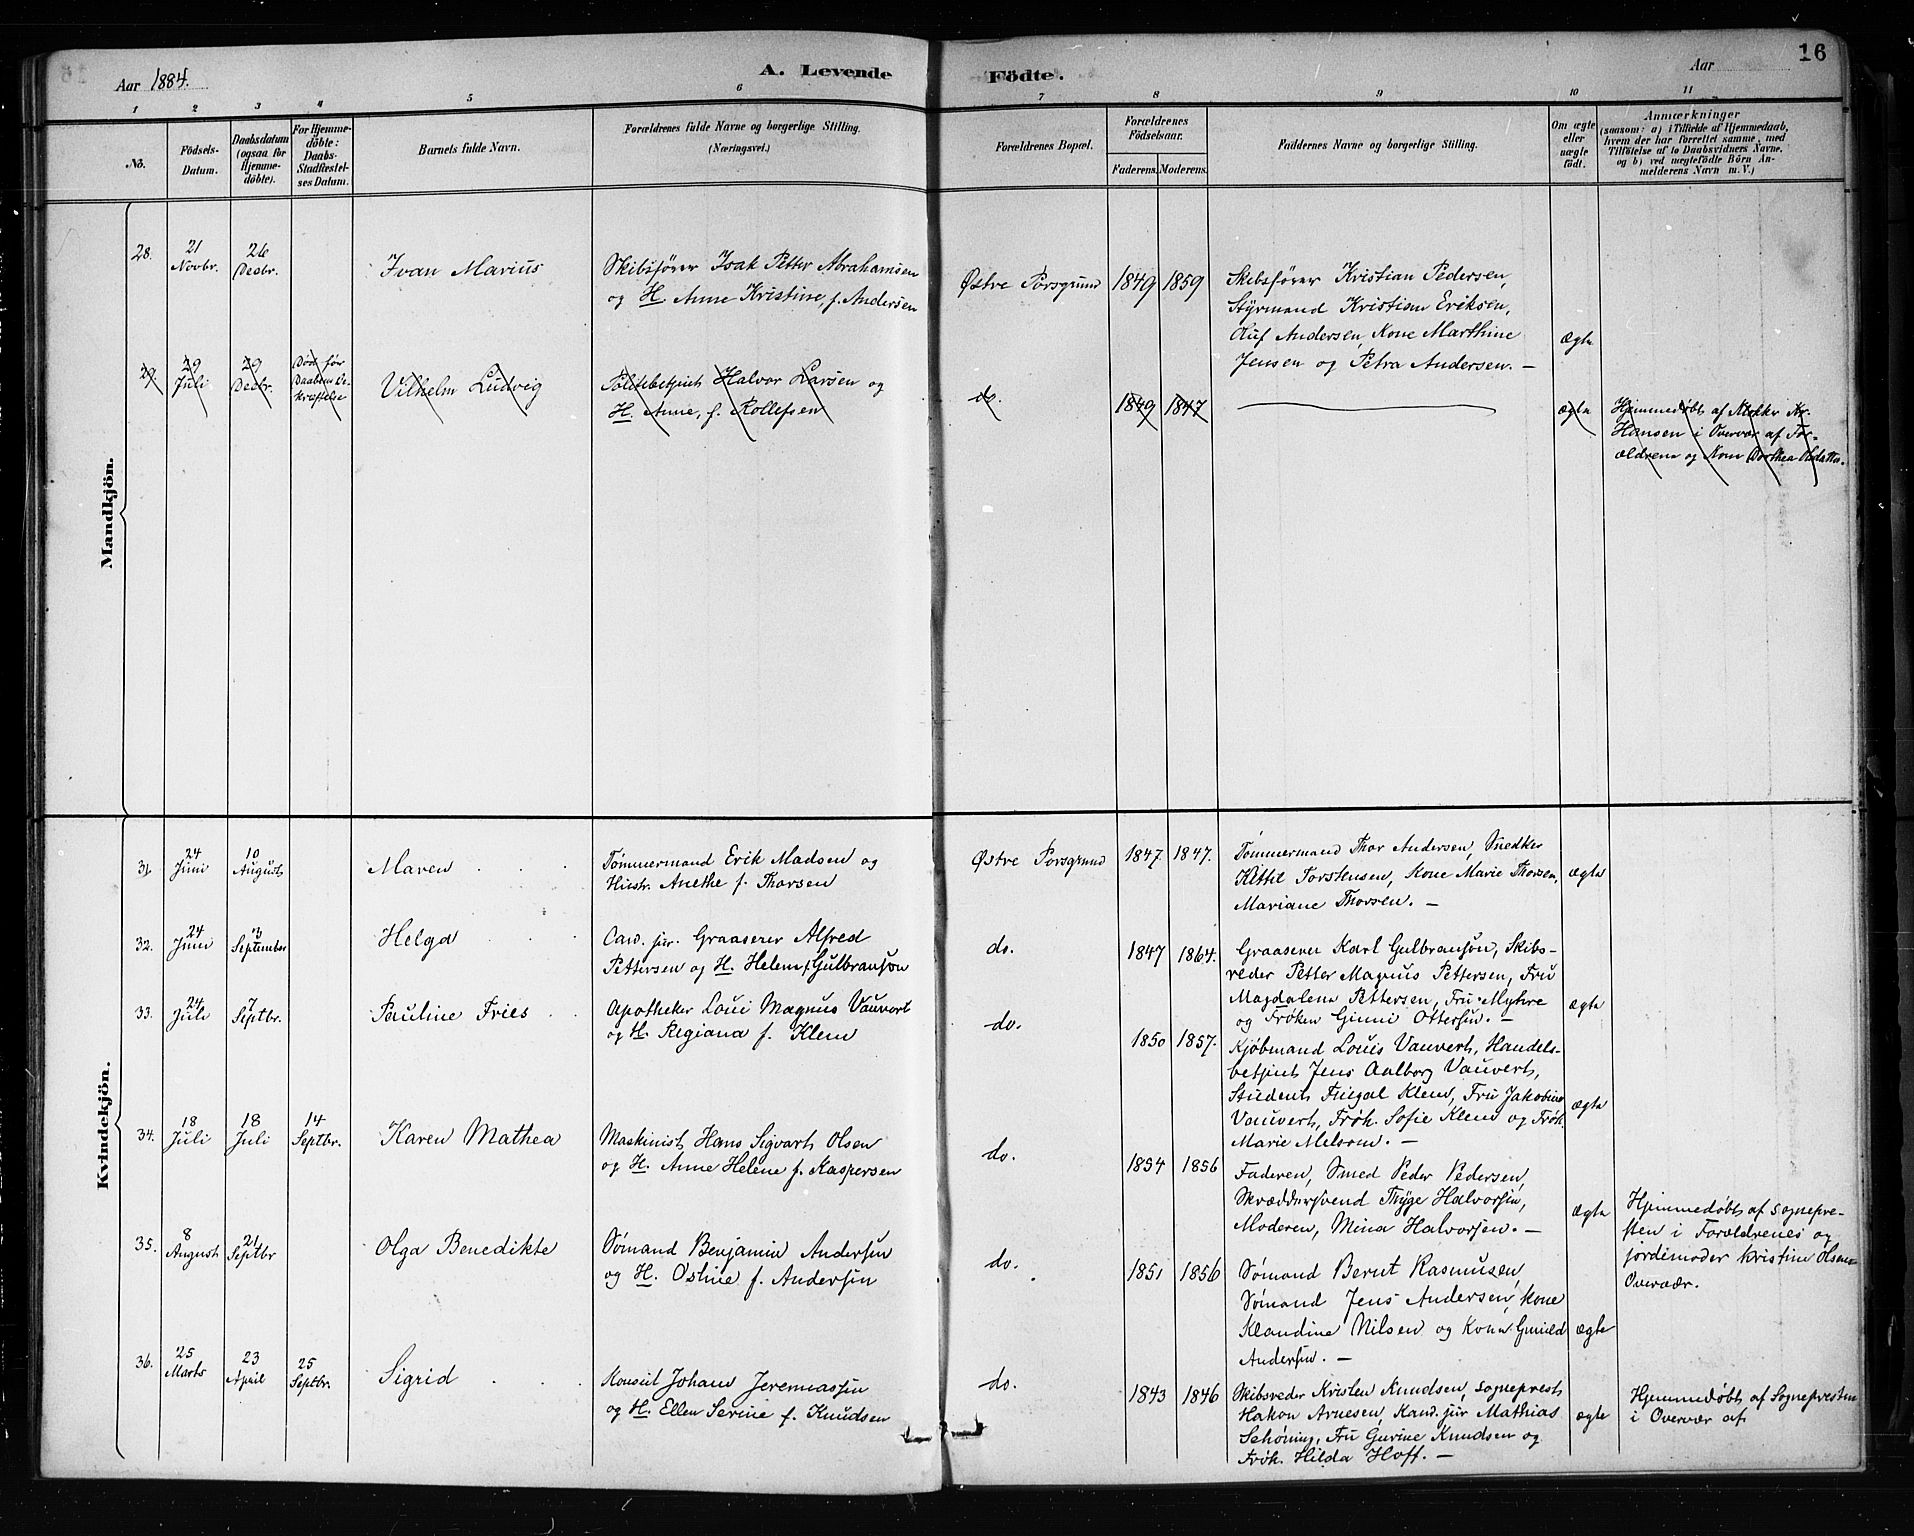 16
Aar 1884.
A. Levende Födte.
Aar
1 2 3 4 5 6 7 8 9 10 11
No.
Födsels-
Datum.
Daabsdatum
(ogsaa for
Hjemme-
döbte).
For Hjemme-
döbte:
Daabs-
Stadfæstel-
ses Datum.
Barnets fulde Navn.
Forældrenes fulde Navne og borgerlige Stilling.
(Næringsvei.)
Forældrenes Bopæl.
Forældrenes
Födselsaar.
Faderens. Moderens.
Faddernes Navne og borgerlige Stilling.
Om ægte
eller
uægte
födt.
Anmærkninger
(saasom: a) i Tilfælde af Hjemmedaab,
hvem der har forrettet samme, med
Tilföielse af to Daabsvidners Navne,
og b) ved uegtefödte Börn An-
melderens Navn m. V.)
Mandkjön.
28.
21
Novbr.
26
Decbr.
Ivan Marius
Skibsfører Isak Petter Abrahamsen
og H. Anne Kristine, f. Andersen
Østre Porsgrund
1849 1859
Skibsfører Kristian Pedersen,
Styrmand Kristian Eriksen,
Auf Andersen, Kone Marthine
Jensen og Petra Andersen. —
ægte
29.
29
Juli
29
Decbr.
Død før
Daabens Be-
kræftelse
Vilhelm Ludvig
Politibetjent Halvor Larsen og
H. Anne, f. Rollefsen
do.
1849 1847
ægte
Hjemmedøbt af
Hansen i Overvær af For-
ældrene og Kone Dorthea Olsdatter.
Kvindekjön.
31.
24
Juni
10
August
Maren
Tömmermand Erik Madsen og
Hustr. Anethe f. Thorsen
Østre Porsgrund
1847. 1847.
Tömmermand Thor Andersen, Snedker
Kittil Torstensen, Kone Marie Thorsen,
Mariane Thorsen. —
ægte
32.
24
Juni
3
September
Helga
Cand. jur. Graaserer Alfred
Pettersen og H. Helene f. Gulbransøn
do.
1847 1864.
Graaserer Karl Gulbransøn, Skibs-
reder Petter Magnus Pettersen, Fru
Magdalene Pettersen, Fru Myhre
og Frøken Ginni Ottersen. —
ægte
33.
24
Juli
7
Septbr.
Pauline Fries
Apotheker Loui Magnus Vauvert
og H. Regiana f. Klem
do.
1850 1857.
Kjøbmand Louis Vauvert, Handels-
betjent Jens Aalborg Vauvert,
Student Fingal Klem, Fru Jakobine
Vauvert, Frøk. Sofie Klem og Frøk.
Marie Melsom. —
ægte
34.
18
Juli
18
Juli
14
Septbr.
Karen Mathea
Maskinist Hans Sigvart Olsen
og H. Anne Helene f. Kaspersen
do.
1854 1856
Faderen, Smed Peder Pedersen,
Skræddersvend Thyge Halvorsen,
Moderen, Mina Halvorsen. —
ægte
Hjemmedøbt af sognepre-
sten i Forældrenes og
jordemoder Kristine Olsens
Overvær.
35.
8
August
21
Septbr
Olga Benedikte
Sømand Benjamin Andersen
og H. Ostine f. Andersen
do.
1851 1856
Sømand Bernt Rasmusen,
Sømand Jens Andersen, kone
Klandine Nilsen og Kone Gunild
Andersen. —
ægte
36.
25
Marts
23
April
25
Septbr.
Sigrid
Konsul Johan Jeremiassen
og H. Ellen Serine f. Knudsen
do.
1843 1846
Skibsreder Kristen Knudsen, sogneprest
Hakon Arnesen, Kand. jur Mathias
Schøning, Fru Gurine Knudsen og
Frøk. Hilda Hoff. —
ægte
Hjemmedøbt af Sognepresten
i Overvær af